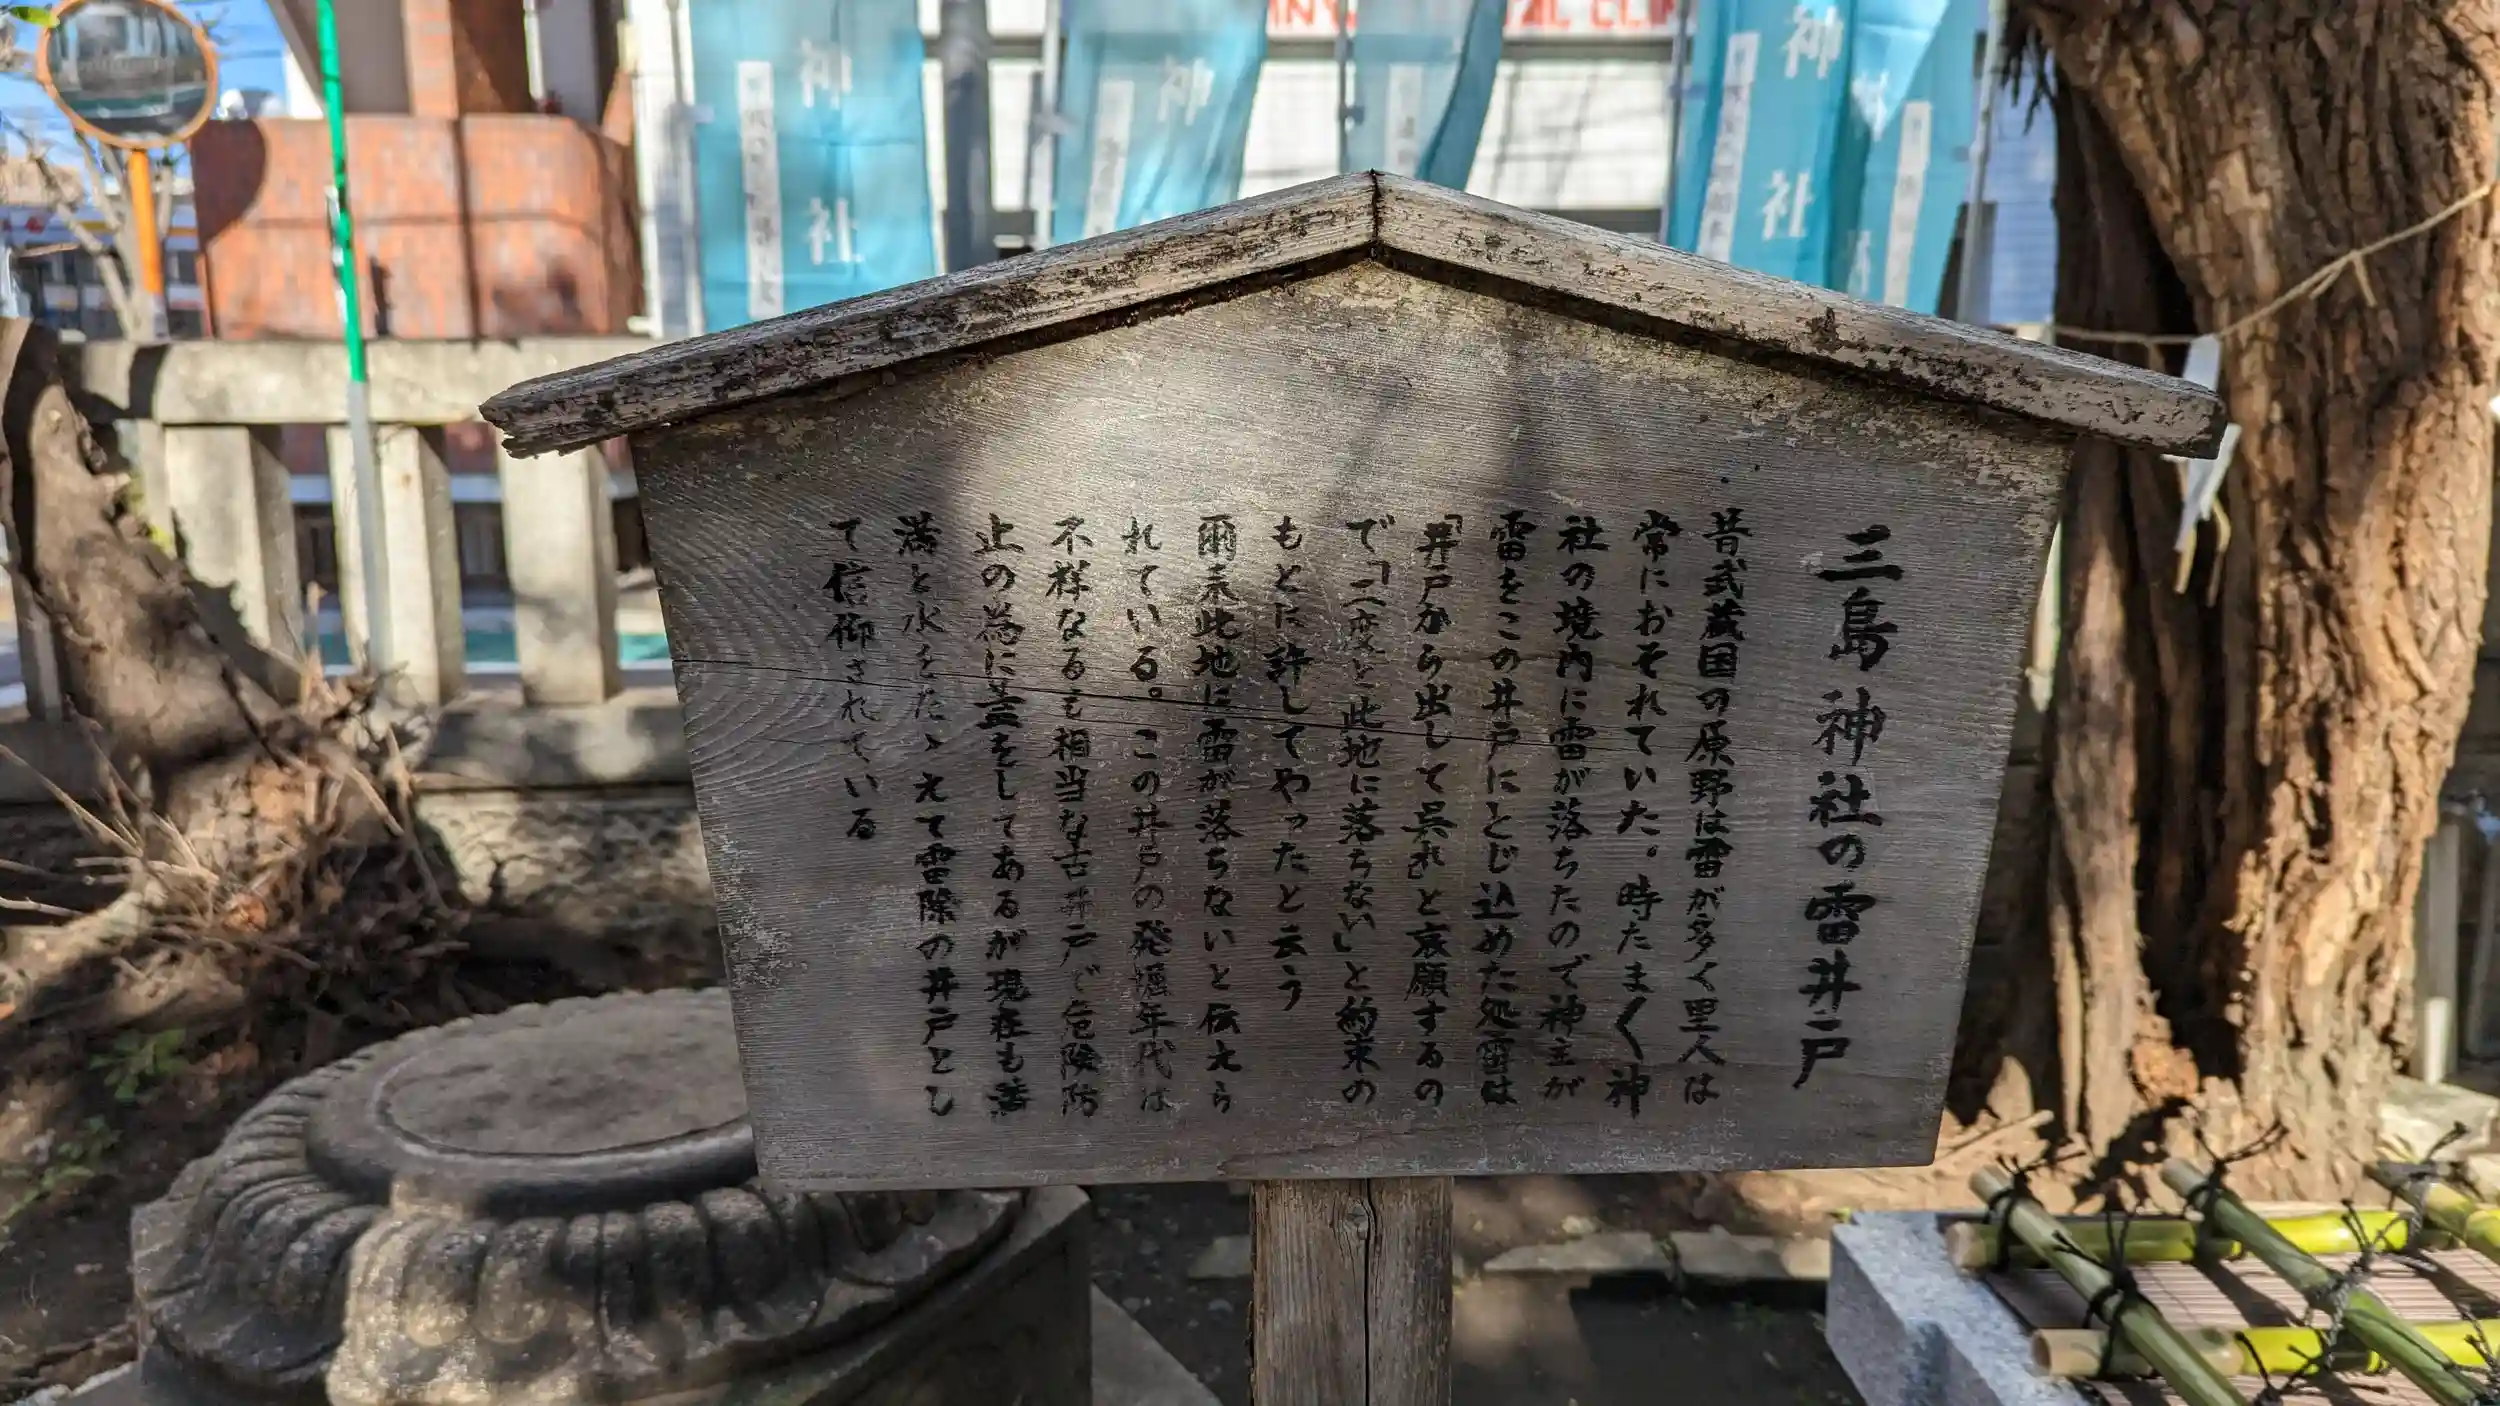 三島神社の雷井戸
昔武蔵国の原野は雷が多く里人は
常におそれていた。時たま〱神
社の境内に雷が落ちたので神主が
雷をこの井戸にとじ込めた処雷は
「井戸から出して呉れ」と哀願するの
で「二度と此地に落ちない」と約束の
もとに許してやったと云う
爾来此地に雷が落ちないと伝えら
れている。この井戸の発掘年代は
不祥なるも相当な古井戸で危険防
止の為に蓋をしてあるが現在も満
満と水をたゝえて雷除の井戸とし
て信仰されている
神社
神
神社